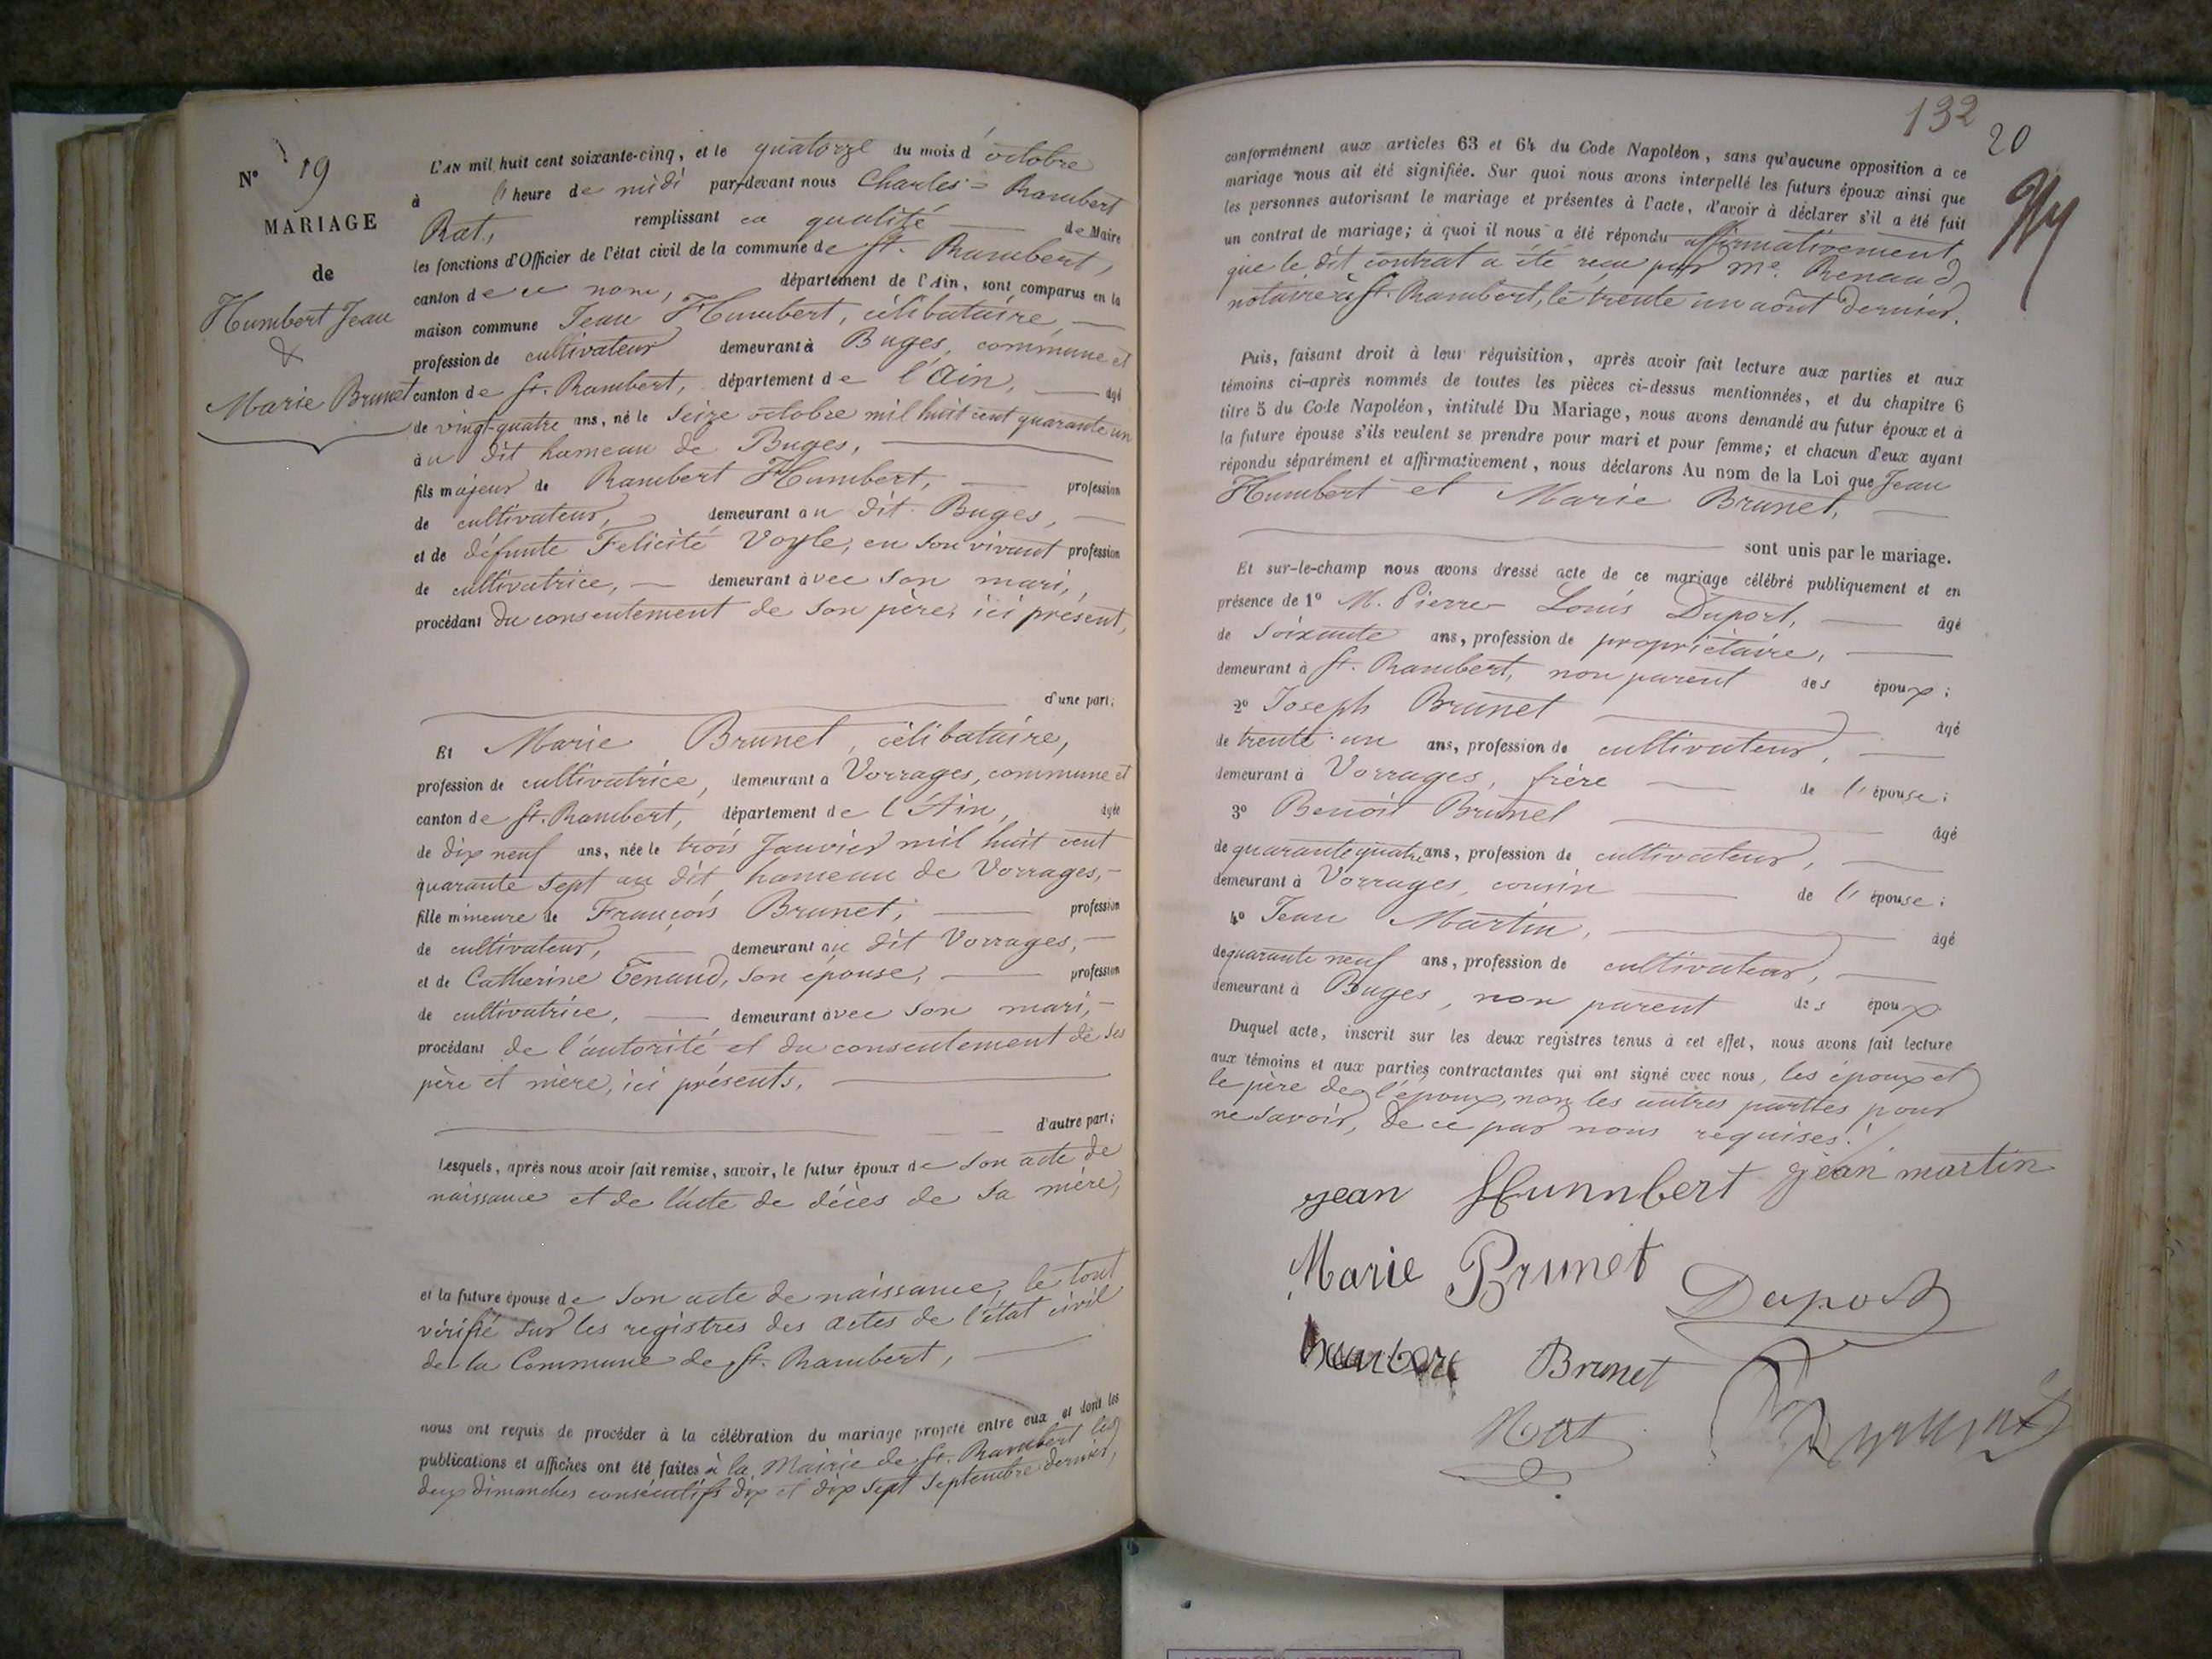 N° 19
MARIAGE
de
Humbert Jean
&
Marie Brunet
L'AN mil huit cent soixante-cinq, et le quatorze du mois d'octobre
à l'heure de midi par-devant nous Charles-Rambert
Rat, remplissant en qualité de Maire
les fonctions d'Officier de l'état civil de la commune de St. Rambert,
canton de ce nom, département de l'Ain, sont comparus en la
maison commune Jean Humbert, célibataire,
profession de cultivateur demeurant à Buges, commune et
canton de St. Rambert, département de l'Ain, âgé
de vingt-quatre ans, né le seize octobre mil huit cent quarante un
au dit hameau de Buges,
fils majeur de Rambert Humbert, profession
de cultivateur, demeurant au dit Buges,
et de défunte Felicité Voyle, en son vivant profession
de cultivatrice, demeurant avec son mari,
procédant du consentement de son père, ici présent,
d'une part;
Et Marie Brunet, célibataire,
profession de cultivatrice, demeurant à Vorrages, commune et
canton de St. Rambert, département de l'Ain, âgée
de dix neuf ans, née le trois Janvier mil huit cent
quarante sept au dit hameau de Vorrages,
fille mineure de François Brunet, profession
de cultivateur, demeurant au dit Vorrages,
et de Catherine Tenand, son épouse, profession
de cultivatrice, demeurant avec son mari,
procédant de l'autorité et du consentement de ses
père et mère, ici présents.
d'autre part;
Lesquels, après nous avoir fait remise, savoir, le futur époux de son acte de
naissance et de l'acte de décès de sa mère,
et la future épouse de son acte de naissance, le tout
vérifié sur les registres des actes de l'état civil
de la Commune de St. Rambert,
nous ont requis de procéder à la célébration du mariage projeté entre eux et dont les
publications et affiches ont été faites à la Mairie de St. Rambert les
deux dimanches consécutifs dix et dix sept septembre dernier,
132
20
conformément aux articles 63 et 64 du Code Napoléon, sans qu'aucune opposition à ce
mariage nous ait été signifiée. Sur quoi nous avons interpellé les futurs époux ainsi que
les personnes autorisant le mariage et présentes à l'acte, d'avoir à déclarer s'il a été fait
un contrat de mariage; à quoi il nous a été répondu affirmativement
que le dit contrat a été reçu par Me. Renaud,
notaire à St. Rambert, le trente un août dernier.
Puis, faisant droit à leur réquisition, après avoir fait lecture aux parties et aux
témoins ci-après nommés de toutes les pièces ci-dessus mentionnées, et du chapitre 6
titre 5 du Code Napoléon, intitulé Du Mariage, nous avons demandé au futur époux et à
la future épouse s'ils veulent se prendre pour mari et pour femme; et chacun d'eux ayant
répondu séparément et affirmativement, nous déclarons Au nom de la Loi que Jean
Humbert et Marie Brunet,
sont unis par le mariage.
Et sur-le-champ nous avons dressé acte de ce mariage célébré publiquement et en
présence de 1° M. Pierre Louis Duport, âgé
de soixante ans, profession de propriétaire,
demeurant à St. Rambert, non parent des époux;
2° Joseph Brunet âgé
de trente un ans, profession de cultivateur,
demeurant à Vorrages, frère de l'épouse;
3° Benoit Brunet âgé
de quarante quatre ans, profession de cultivateur,
demeurant à Vorrages, cousin de l'épouse;
4° Jean Martin, âgé
de quarante neuf ans, profession de cultivateur,
demeurant à Buges, non parent des époux
Duquel acte, inscrit sur les deux registres tenus à cet effet, nous avons fait lecture
aux témoins et aux parties contractantes qui ont signé avec nous, les époux et
le père de l'époux, non les autres parties pour
ne savoir, de ce par nous requises.
jean Hunnbert jean martin
Marie Brunet
Duport
Brunet
Rat